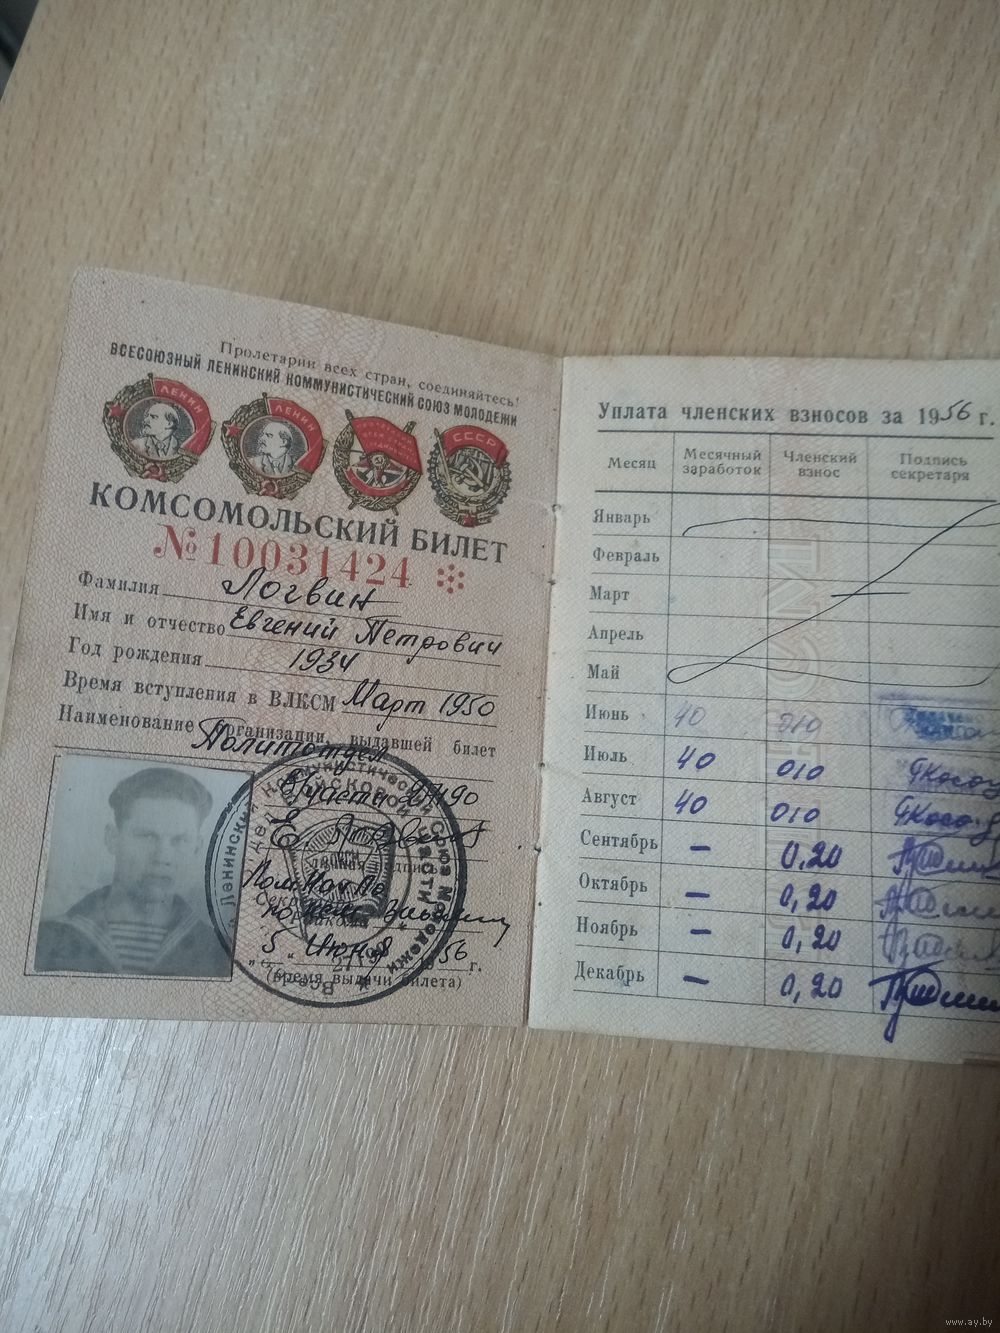 Пролетарии всех стран, соединяйтесь!
ВСЕСОЮЗНЫЙ ЛЕНИНСКИЙ КОММУНИСТИЧЕСКИЙ СОЮЗ МОЛОДЕЖИ
ЛЕНИН
ЛЕНИН
СССР
КОМСОМОЛЬСКИЙ БИЛЕТ
№ 10031424
Фамилия Логвин
Имя и отчество Евгений Петрович
Год рождения 1934
Время вступления в ВЛКСМ Март 1950
Наименование организации, выдавшей билет
Политотдел
В/части
5 Июня 1956 г.
(время выдачи билета)
Уплата членских взносов за 1956 г.
Месяц Месячный заработок Членский взнос Подпись секретаря
Январь
Февраль
Март
Апрель
Май
Июнь 40 010
Июль 40 010
Август 40 010
Сентябрь – 0,20
Октябрь – 0,20
Ноябрь – 0,20
Декабрь – 0,20
www.ay.by